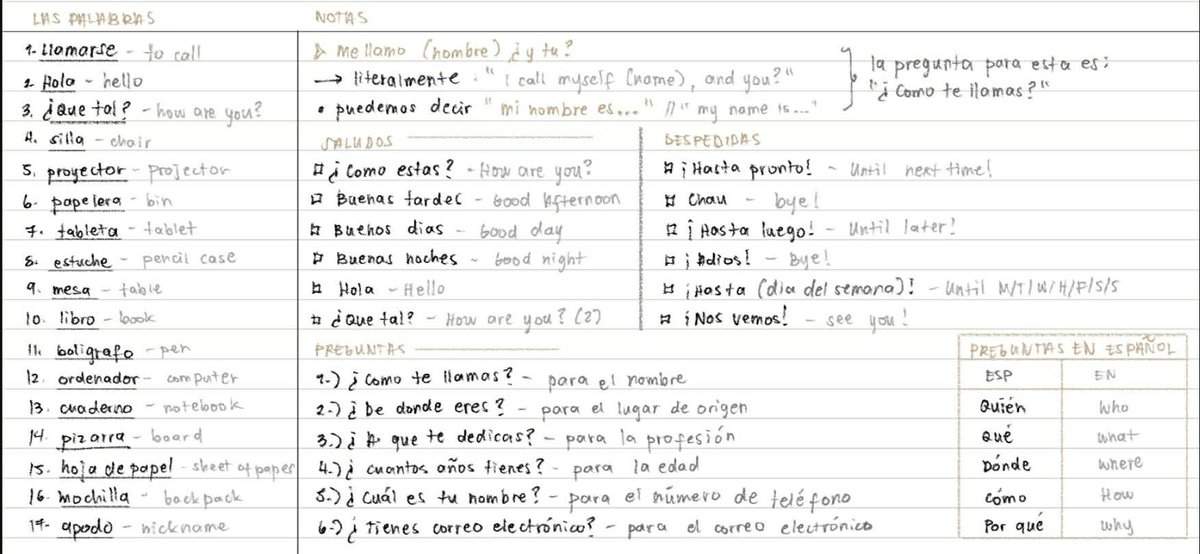 LAS PALABRAS
1. Llamarse - to call
2. Hola - hello
3. ¿Que tal? - how are you?
4. silla - chair
5. proyector - projector
6. papelera - bin
7. tableta - tablet
8. estuche - pencil case
9. mesa - table
10. libro - book
11. boligrafo - pen
12. ordenador - computer
13. cuaderno - notebook
14. pizarra - board
15. hoja de papel - sheet of paper
16. mochilla - backpack
17. apodo - nickname
NOTAS
Me llamo (nombre) ¿y tu?
→ literalmente : "I call myself (name), and you?"
• puedemos decir "mi nombre es..." // "my name is..."
la pregunta para esta es:
"¿Como te llamas?"
SALUDOS
¿Como estas? - How are you?
Buenas tardes - Good Afternoon
Buenos dias - Good day
Buenas noches - Good night
Hola - Hello
¿Que tal? - How are you? (2)
DESPEDIDAS
¡Hasta pronto! - Until next time!
Chau - bye!
¡Hasta luego! - Until later!
¡Adios! - Bye!
¡Hasta (dia del semana)! - Until M/T/W/H/F/S/S
¡Nos vemos! - see you!
PREGUNTAS
1.) ¿Como te llamas? - para el nombre
2.) ¿De donde eres? - para el lugar de origen
3.) ¿A que te dedicas? - para la profesión
4.) ¿cuantos años tienes? - para la edad
5.) ¿Cuál es tu nombre? - para el número de teléfono
6.) ¿Tienes correo electrónico? - para el correo electrónico
PREGUNTAS EN ESPAÑOL
ESP EN
Quién who
Qué what
Dónde where
cómo How
Por qué why